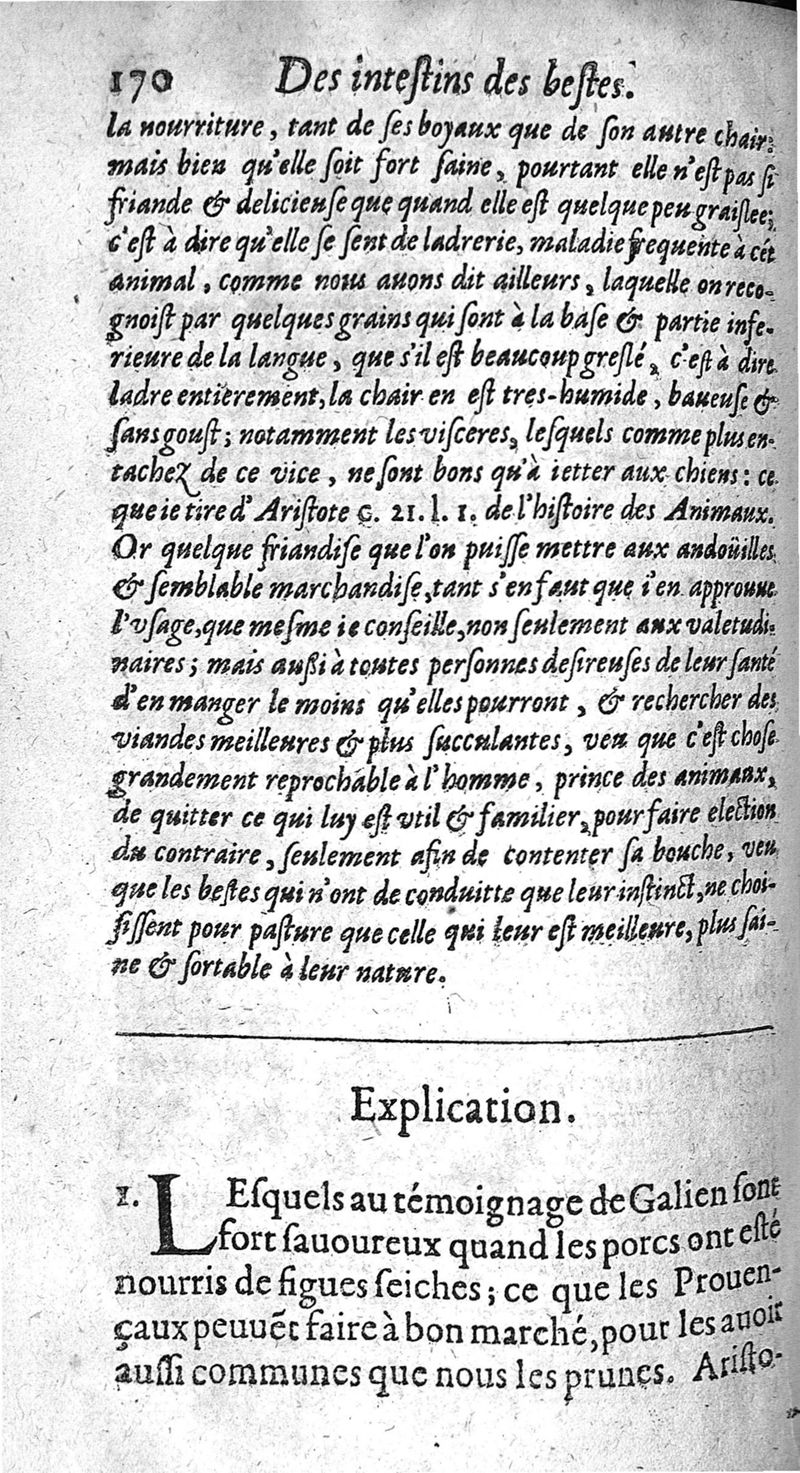 170 Des inteſtins des beſtes.
la nourriture, tant de ſes boyaux que de ſon autre chair:
mais bien qu'elle ſoit fort ſaine, pourtant elle n'eſt pas ſi
friande & delicieuſe que quand elle eſt quelque peu graiſlee;
c'eſt à dire qu'elle ſe ſent de ladrerie, maladie frequente à cét
animal, comme nous auons dit ailleurs, laquelle on reco-
gnoiſt par quelques grains qui ſont à la baſe & partie infe-
rieure de la langue, que s'il eſt beaucoup greſlé, c'eſt à dire
ladre entierement, la chair en eſt tres-humide, baueuſe &
ſans gouſt; notamment les viſceres, leſquels comme plus en-
tachez de ce vice, ne ſont bons qu'à ietter aux chiens: ce
que ie tire d'Ariſtote c. 21. l. 1. de l'hiſtoire des Animaux.
Or quelque friandiſe que l'on puiſſe mettre aux andoüilles
& ſemblable marchandiſe, tant s'en faut que i'en approuue
l'vſage, que meſme ie conſeille, non ſeulement aux valetudi-
naires; mais außi à toutes perſonnes deſireuſes de leur ſanté
d'en manger le moins qu'elles pourront, & rechercher des
viandes meilleures & plus ſucculantes, veu que c'eſt choſe
grandement reprochable à l'homme, prince des animaux,
de quitter ce qui luy eſt vtil & familier, pour faire election
du contraire, ſeulement afin de contenter ſa bouche, veu
que les beſtes qui n'ont de conduitte que leur inſtinct, ne choi-
ſiſſent pour paſture que celle qui leur eſt meilleure, plus ſai-
ne & ſortable à leur nature.
Explication.
1. LEſquels au témoignage de Galien ſont
fort ſauoureux quand les porcs ont eſté
nourris de figues ſeiches; ce que les Prouen-
çaux peuuẽt faire à bon marché, pour les auoir
auſſi communes que nous les prunes. Ariſto-